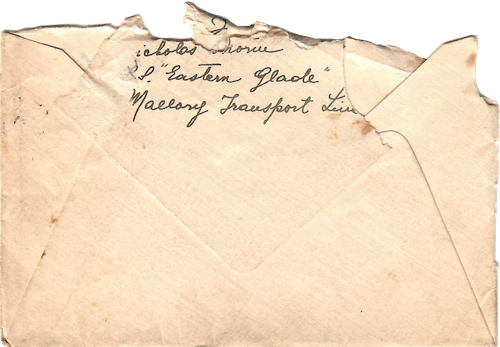 icholas
S. "Eastern Glade"
Mallory Transport Lin